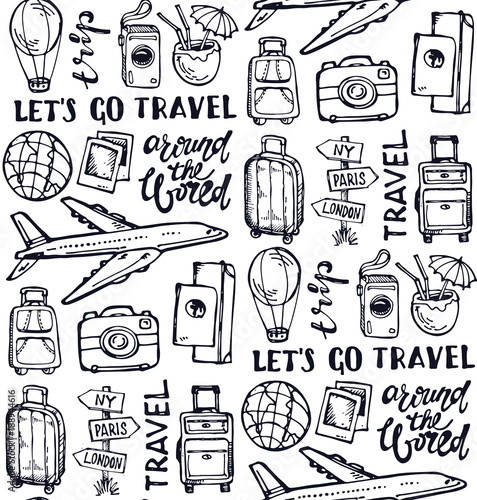 trip
LET'S GO TRAVEL
around
the
World
NY
PARIS
LONDON
TRAVEL
trip
LET'S GO TRAVEL
NY
PARIS
LONDON
TRAVEL
around
the
World